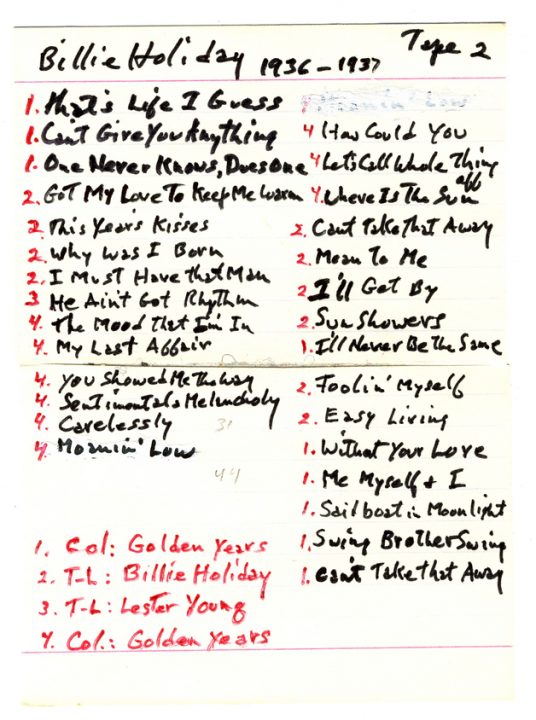 Billie Holiday 1936-1937 Tape 2
1. That's Life I Guess
1. Can't Give You Anything
1. One Never Knows, Does One
2. Got My Love To Keep Me Warm
2. This Year's Kisses
2. Why Was I Born
2. I Must Have that Man
3 He Ain't Got Rhythm
4. The Mood that I'm In
4. My Last Affair
4. You Showed Me the Way
4. Sentimental & Melancholy
4. Carelessly
4. Moanin' Low
31
44
Moanin' Low
4 How Could You
4 Let's Call Whole Thing off
4. Where Is The Sun
2. Can't Take That Away
2. Mean To Me
2 I'll Get By
2. Sun Showers
1. I'll Never Be the Same
2. Foolin' Myself
2. Easy Living
1. Without Your Love
1. Me Myself + I
1. Sail boat in Moonlight
1. Swing Brother Swing
1. Can't Take That Away
1. Col: Golden Years
2. T-L: Billie Holiday
3. T-L: Lester Young
4. Col.: Golden Years